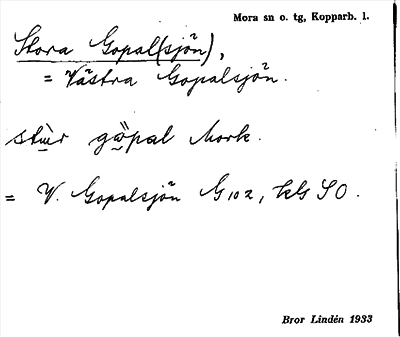 Mora sn o. tg, Kopparb. l.
Stora Gopal(sjön),
= Västra Gopalsjön.
stùr gö̀pal Mork.
= V. Gopalsjön G102, kls SO.
Bror Lindén 1933